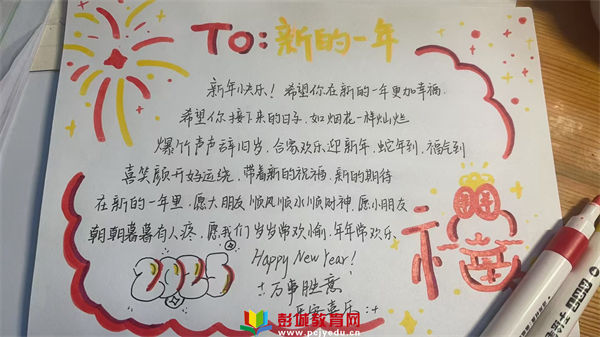 TO: 新的一年
新年快乐！希望你在新的一年更加幸福.
希望你接下来的日子，如烟花一样灿烂
爆竹声声辞旧岁，合家欢乐迎新年，蛇年到，福气到
喜笑颜开好运绕，带着新的祝福，新的期待
在新的一年里，愿大朋友顺风顺水顺财神，愿小朋友
朝朝暮暮有人疼，愿我们岁岁常欢愉，年年常欢乐、
Happy New Year!
2025
万事胜意
平安喜乐
福
彭城教育网
www.pcjyedu.cn